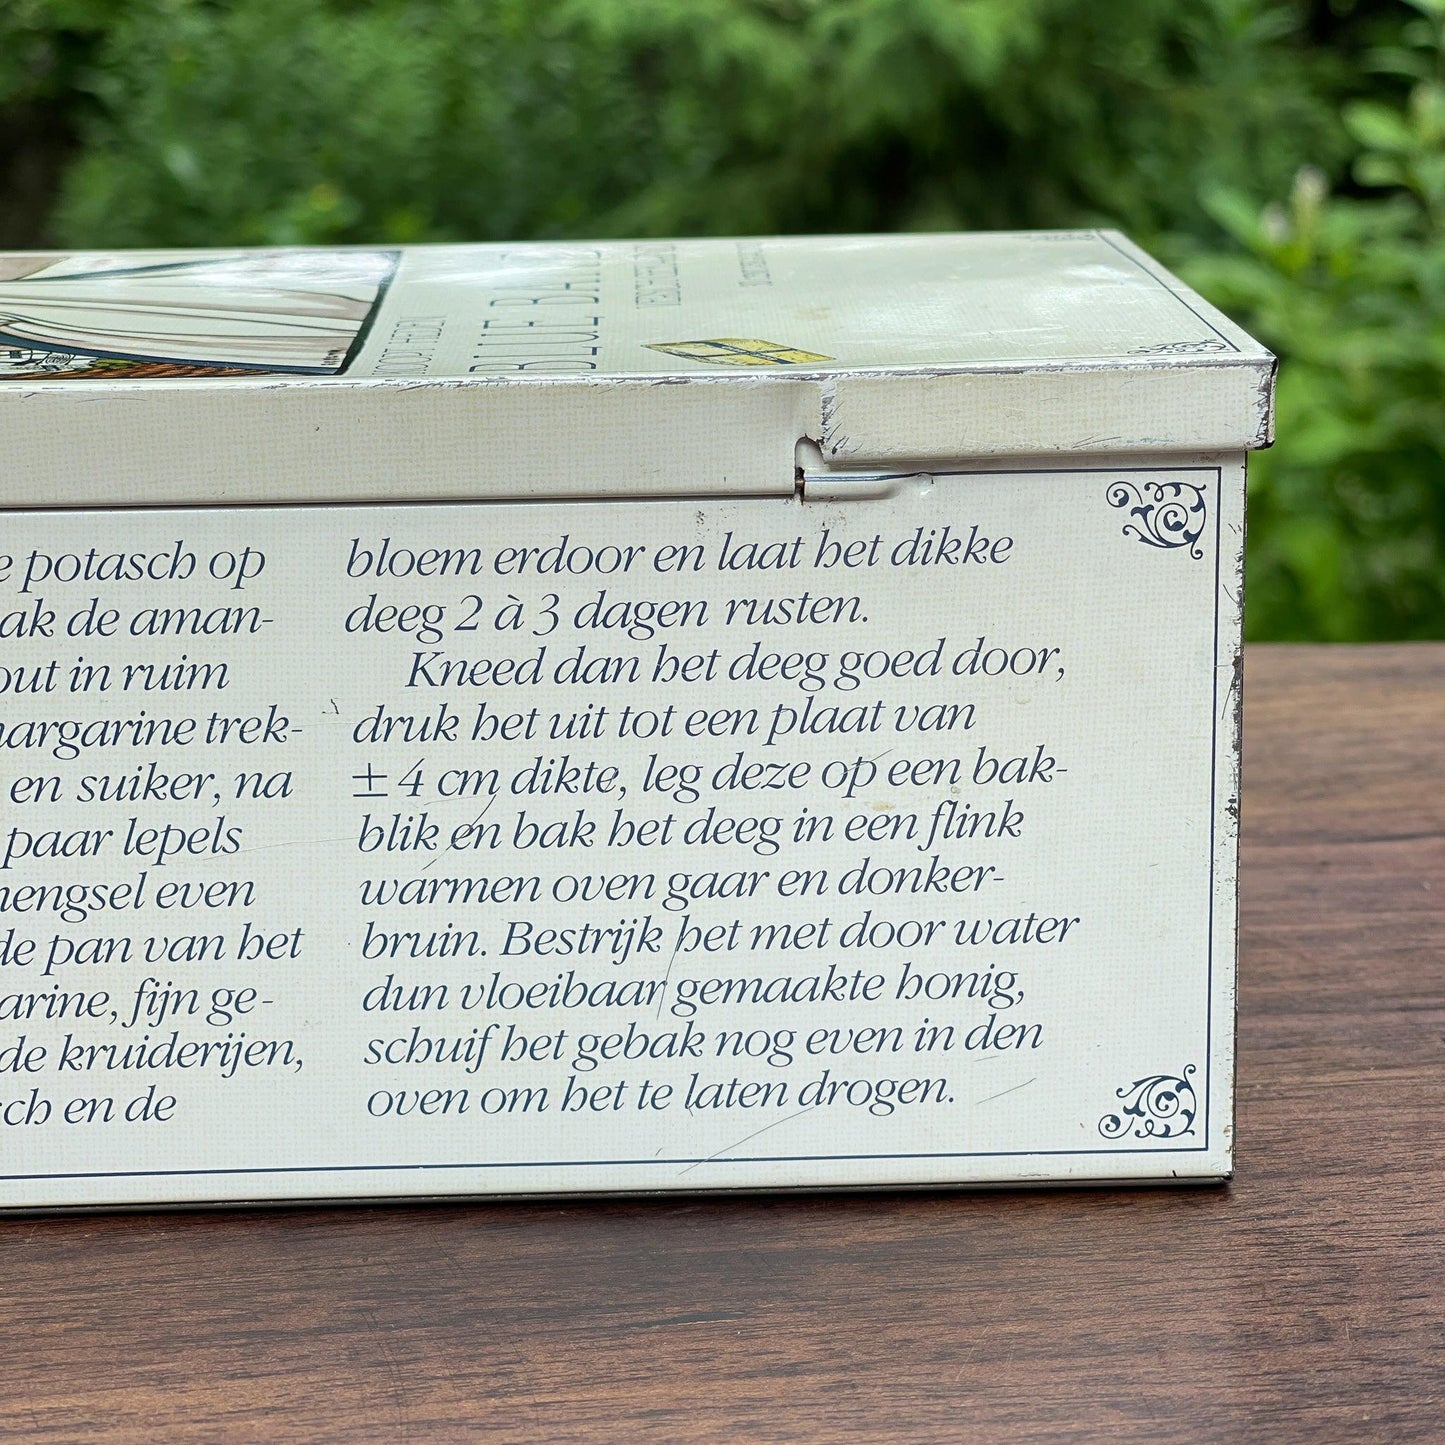 BLUE BAND
potasch op
de aman-
in ruim
margarine trek-
en suiker, na
paar lepels
mengsel even
de pan van het
fijn ge-
de kruiderijen,
en de
bloem erdoor en laat het dikke
deeg 2 à 3 dagen rusten.
Kneed dan het deeg goed door,
druk het uit tot een plaat van
± 4 cm dikte, leg deze op een bak-
blik en bak het deeg in een flink
warmen oven gaar en donker-
bruin. Bestrijk het met door water
dun vloeibaar gemaakte honig,
schuif het gebak nog even in den
oven om het te laten drogen.